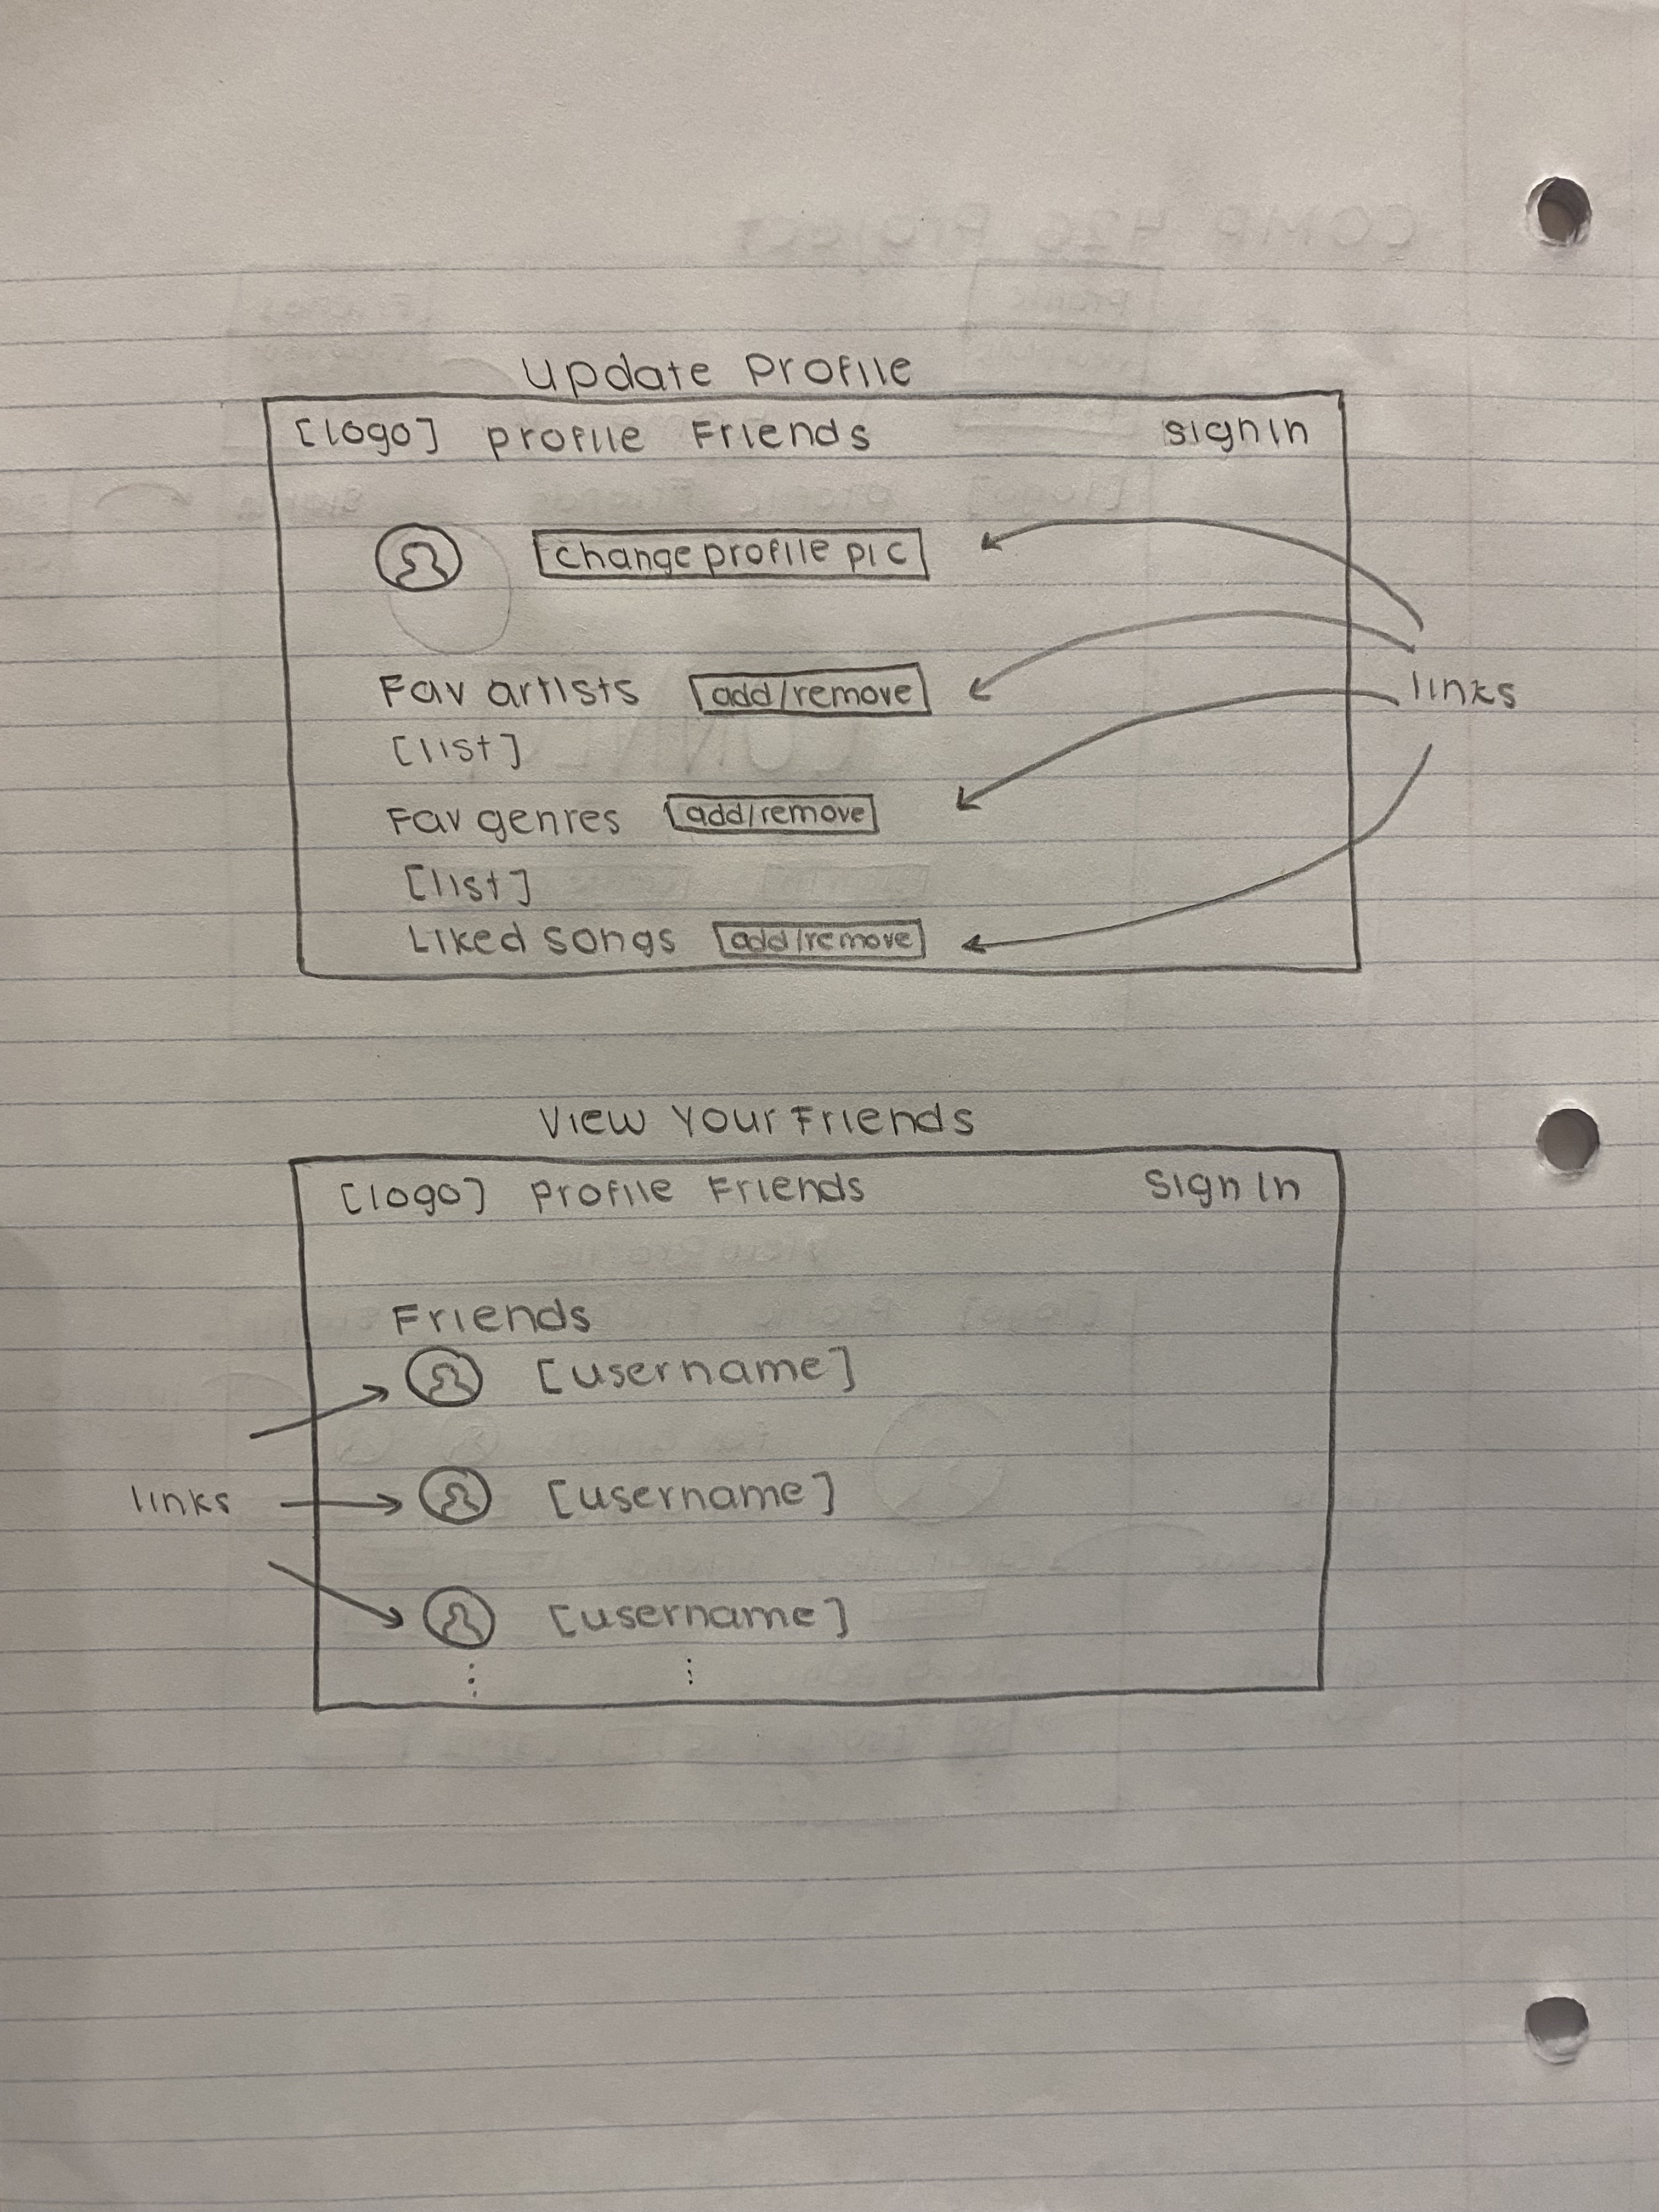 COMP 426 Project
Update Profile
[logo] Profile Friends Sign In
change profile pic
Fav artists add/remove
links
[list]
Fav genres add/remove
[list]
Liked songs add/remove
View Your Friends
[logo] Profile Friends Sign In
Friends
[username]
links [username]
[username]